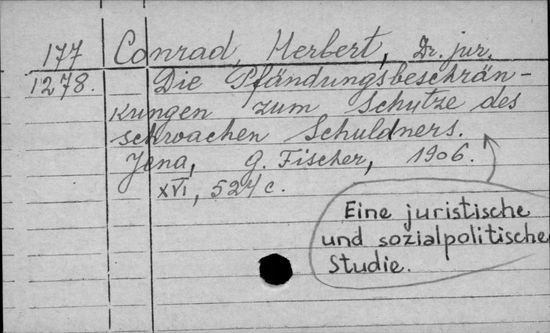 177 Conrad, Herbert, Dr. jur.
1278. Die Pfändungsbeschrän-
kungen zum Schutze des
schwachen Schuldners.
Jena, G. Fischer, 1906.
XVI, 524 c.
Eine juristische
und sozialpolitische
Studie.